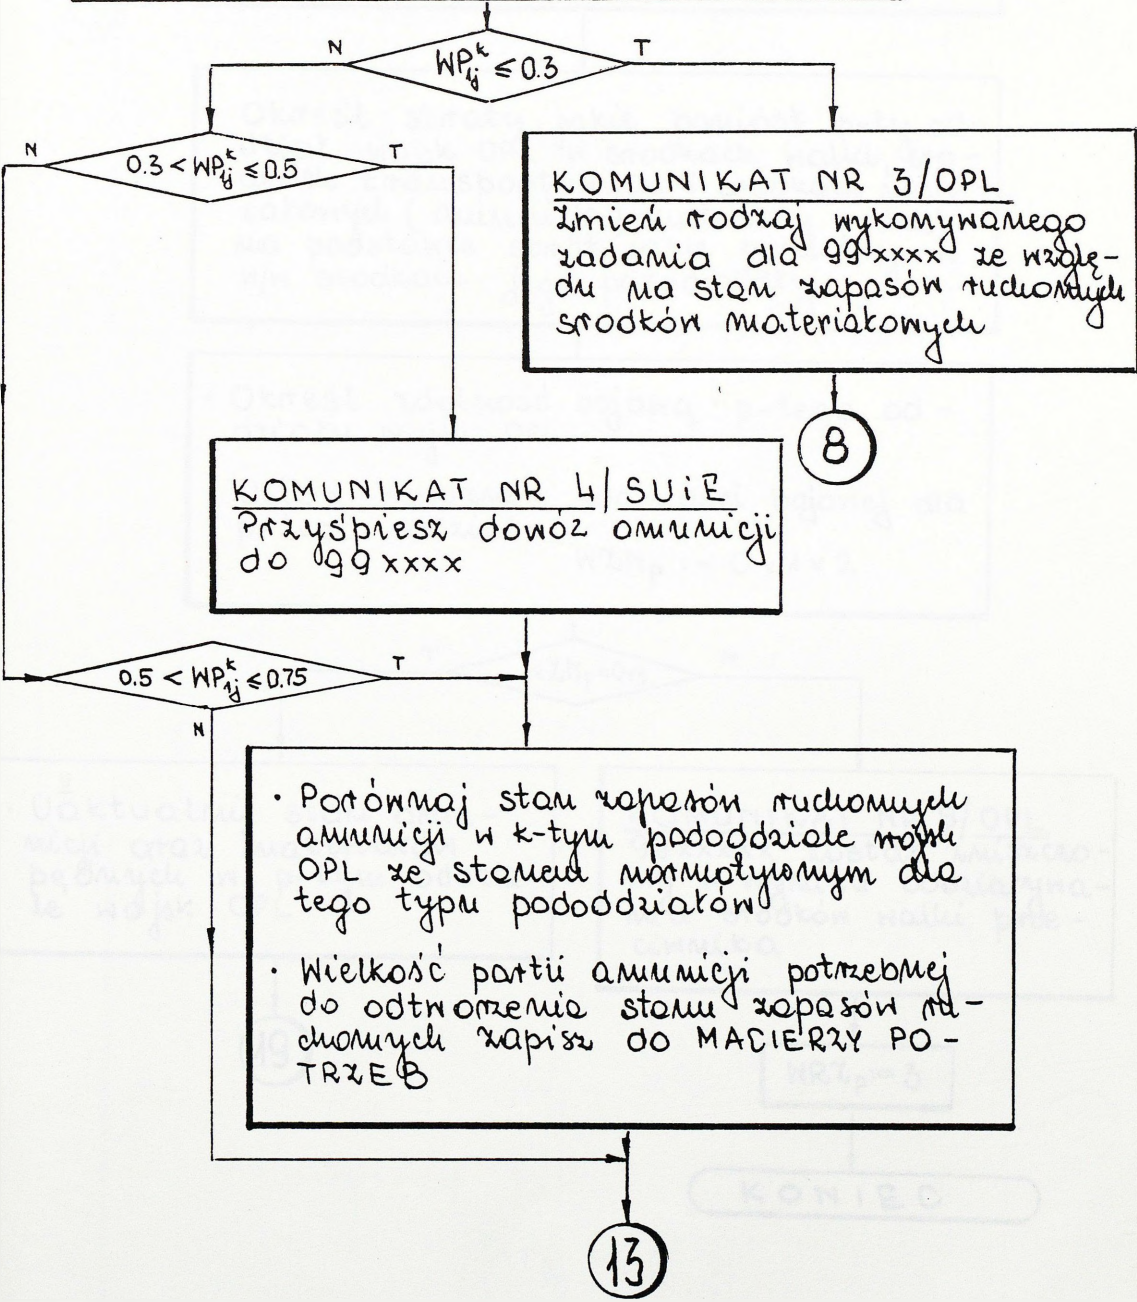 WP_1j^k ≤ 0.3
N
T
0.3 < WP_1j^k ≤ 0.5
N
T
KOMUNIKAT NR 3/OPL
Zmień rodzaj wykonywanego
zadania dla 99xxxx ze wzglę-
du na stan zapasów ruchomych
środków materiałowych
8
KOMUNIKAT NR 4/SUiE
Przyśpiesz dowóz amunicji
do 99xxxx
0.5 < WP_1j^k ≤ 0.75
T
N
· Porównaj stan zapasów ruchomych
amunicji w k-tym pododdziale wojsk
OPL ze stanem normatywnym dla
tego typu pododdziałów
· Wielkość partii amunicji potrzebnej
do odtworzenia stanu zapasów ru-
chomych zapisz do MACIERZY PO-
TRZEB
13
KONIEC